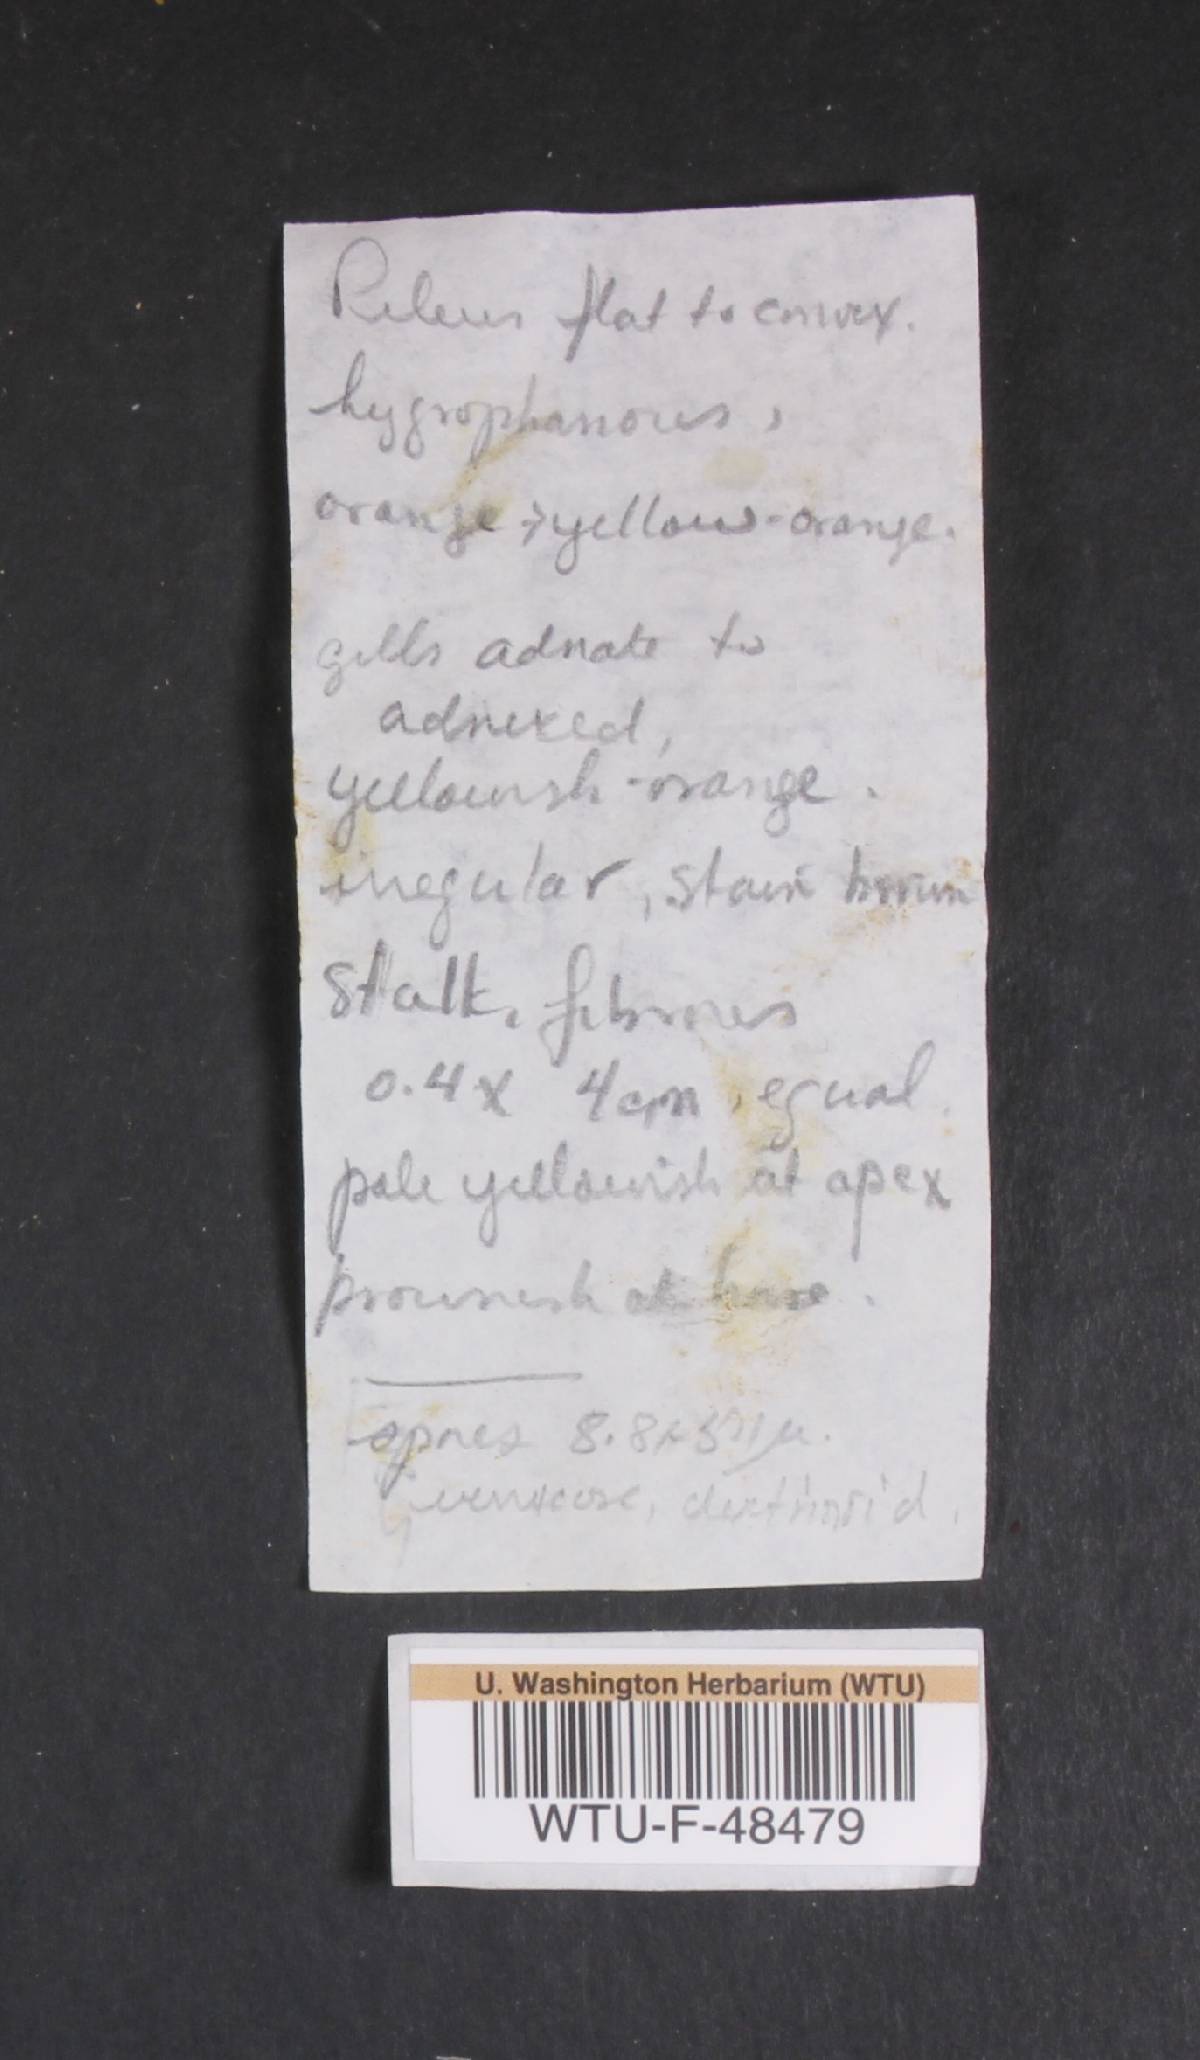 Pileus flat to convex.
hygrophanous,
orange → yellow-orange.
gills adnate to
adnexed,
yellowish-orange.
irregular, stain brown
Stalk, fibrous
0.4 x 4cm, equal.
pale yellowish at apex
brownish at base.
spores 8.8x
verrucose, dextrinoid.
U. Washington Herbarium (WTU)
WTU-F-48479